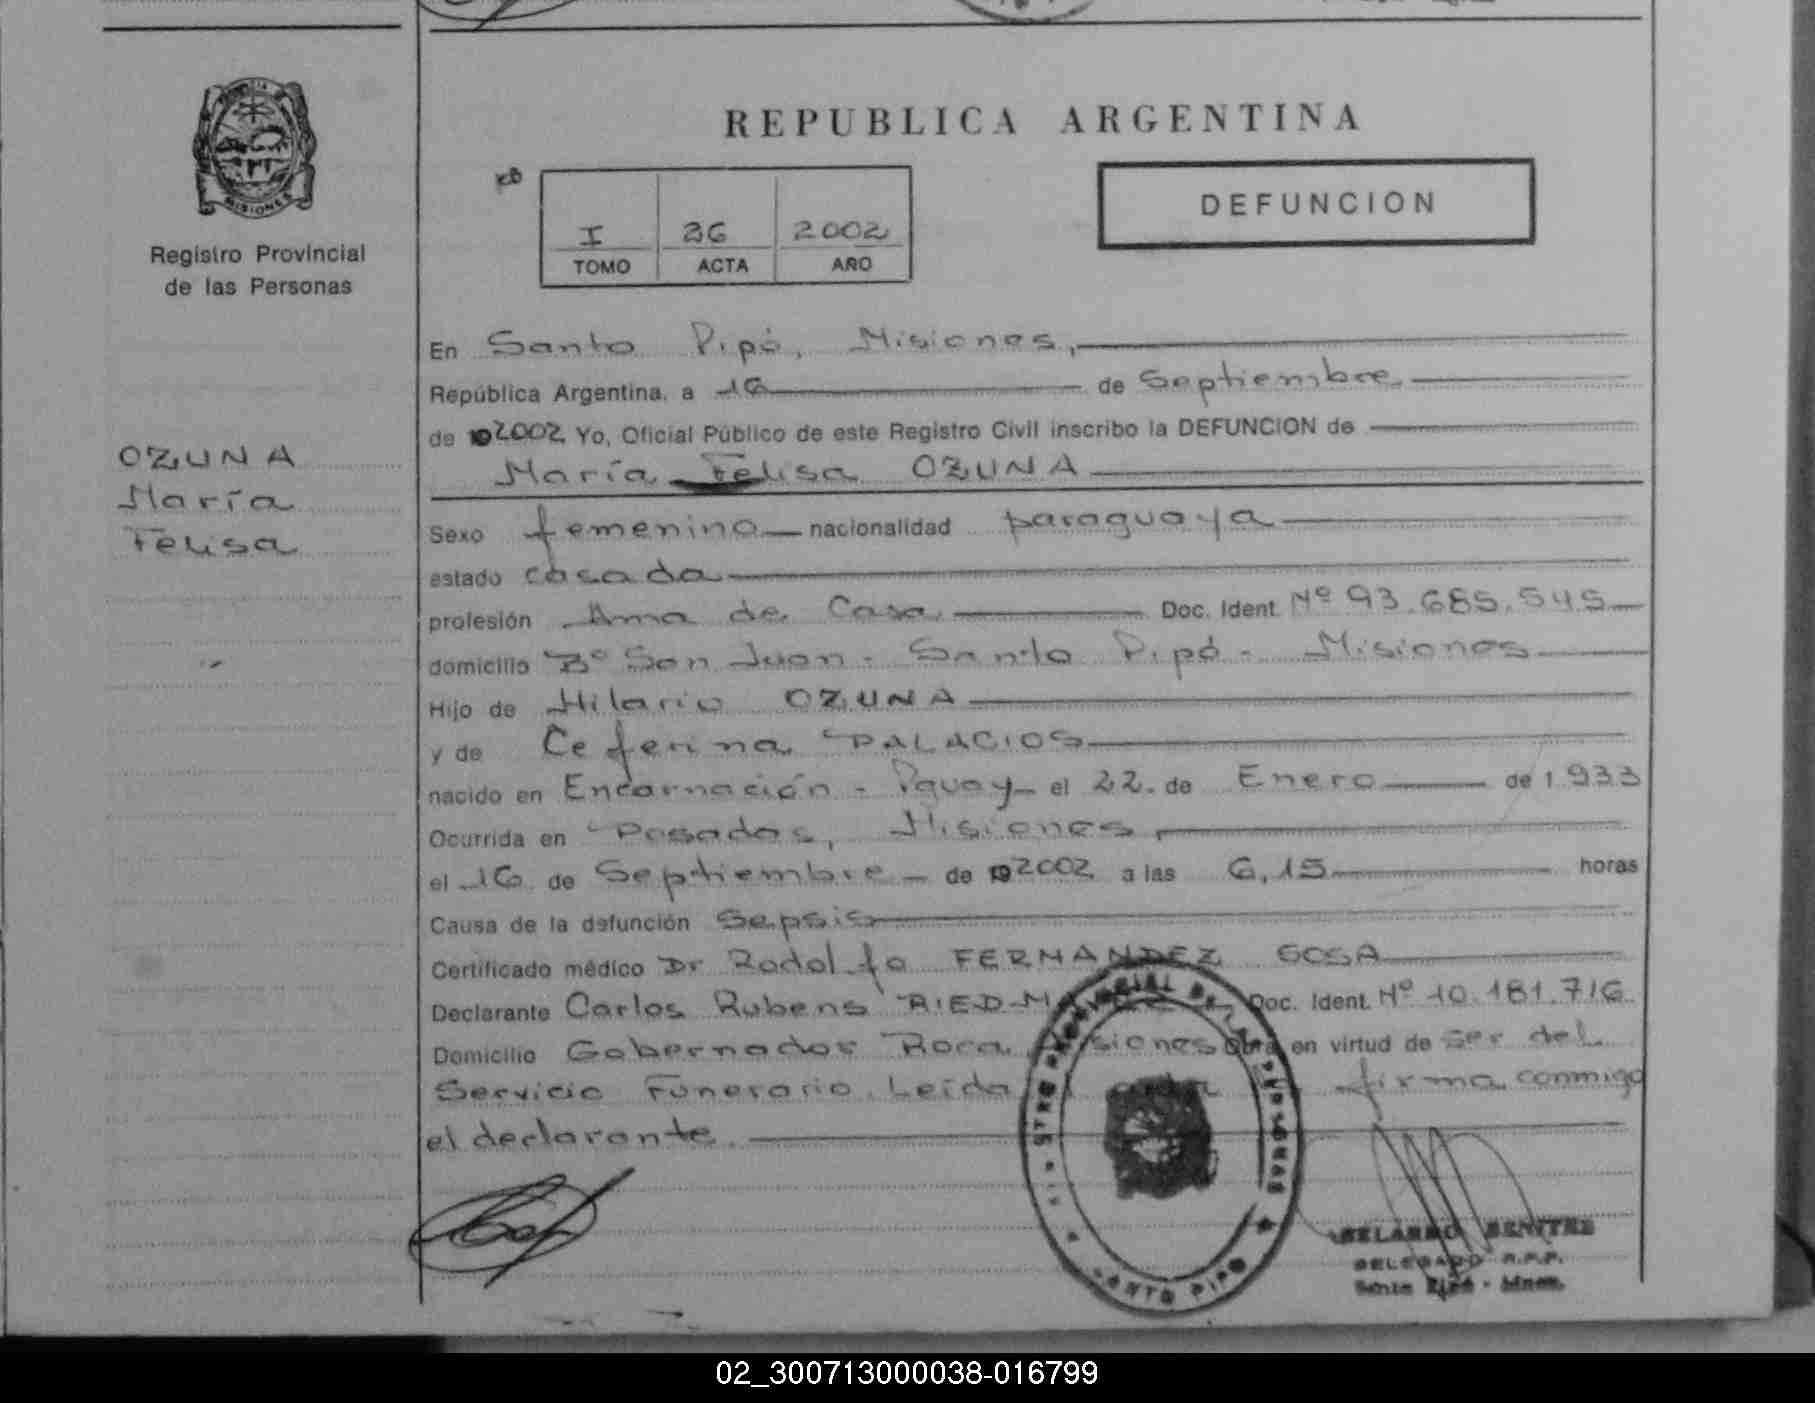 REPUBLICA ARGENTINA
DEFUNCION
I 36 2002
TOMO ACTA AÑO
MISIONES
Registro Provincial
de las Personas
OZUNA
María
Felisa
En Santo Pipó, Misiones,
República Argentina, a 16 de Septiembre
de 2002 Yo, Oficial Público de este Registro Civil inscribo la DEFUNCION de
María Felisa OZUNA
Sexo femenino nacionalidad paraguaya
estado casada
profesión Ama de Casa Doc. Ident. Nº 93.685.545
domicilio Bº San Juan - Santo Pipó - Misiones
Hijo de Hilario OZUNA
y de Ceferina PALACIOS
nacido en Encarnación - Pguay el 22 de Enero de 1.933
Ocurrida en Posadas, Misiones,
el 16 de Septiembre de 2002 a las 6,15 horas
Causa de la defunción Sepsis
Certificado médico Dr Rodolfo FERNANDEZ SOSA
Declarante Carlos Rubens Doc. Ident. Nº 10.181.716
Domicilio Gobernador Roca Misiones Obra en virtud de ser del
Servicio Funerario. Leída firma conmigo
el declarante.
SANTO PIPO
BENITEZ
DELEGADO R.P.P.
Santo Pipó - Mnes.
02_300713000038-016799